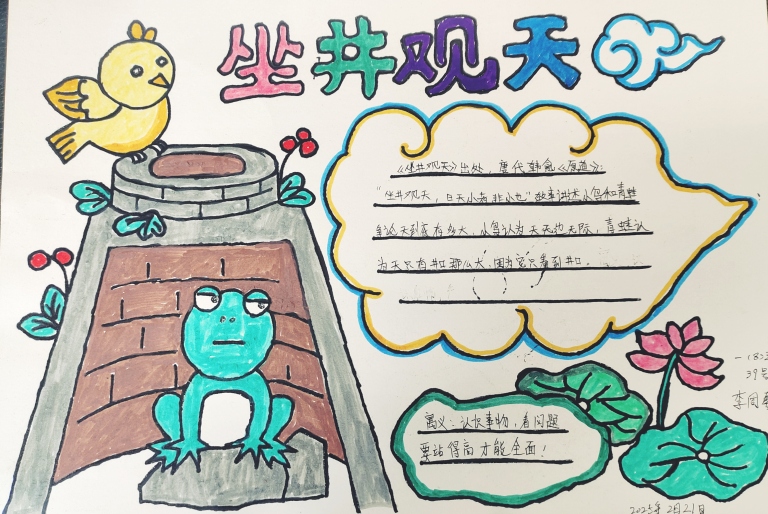 坐井观天
《坐井观天》出处，唐代韩愈《原道》:
"坐井观天，曰天小者非小也"故事讲述小鸟和青蛙
争论天到底有多大，小鸟认为天无边无际，青蛙认
为天只有井口那么大，因为它只看到井口.
寓义：认识事物，看问题
要站得高才能全面！
39号
2025年2月21日